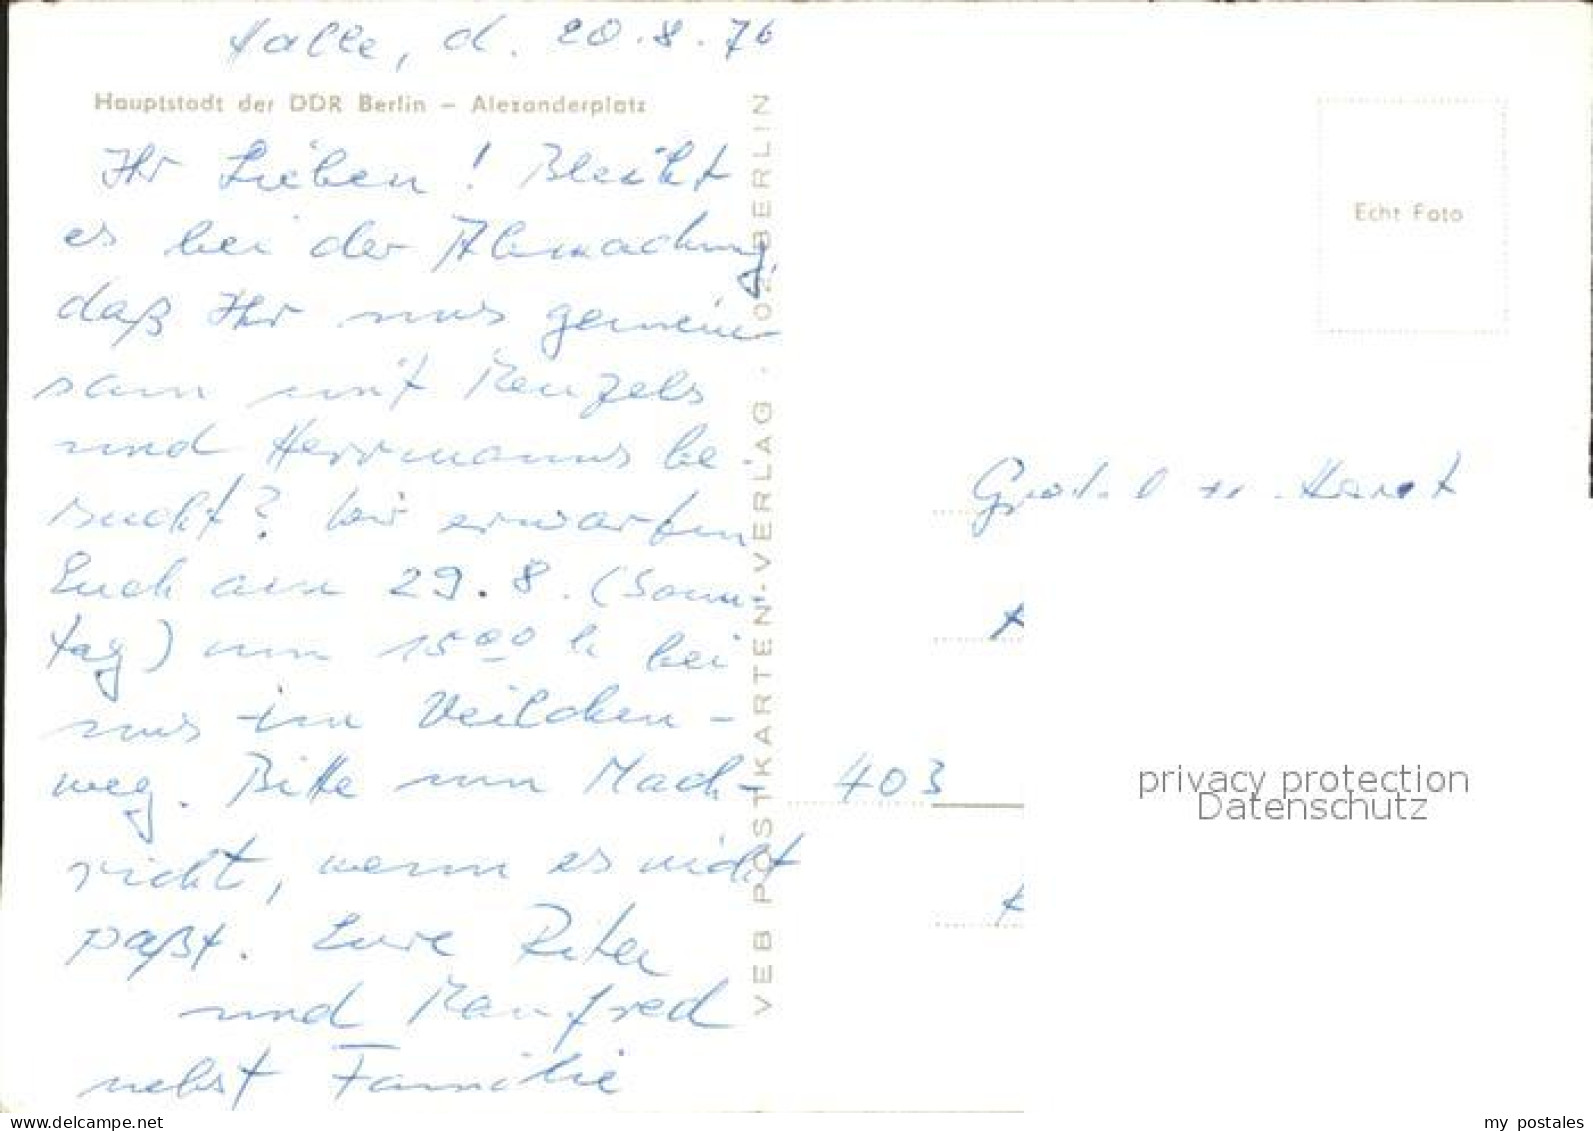 Halle, d. 20.8.76
Hauptstadt der DDR Berlin – Alexanderplatz
Ihr Lieben! Bleibt
es bei der Abmachung,
daß Ihr uns gemein-
sam mit Menzels
und Herrmanns be
sucht? Wir erwarten
Euch am 29.8. (Sonn-
tag) um 15⁰⁰ h bei
uns im Veilchen-
weg. Bitte um Nach-
richt, wenn es nicht
paßt. Eure
und Manfred
nebst Familie
VEB POSTKARTEN-VERLAG · 102 BERLIN
Echt Foto
403
privacy protection
Datenschutz
delcampe.net
my_postales